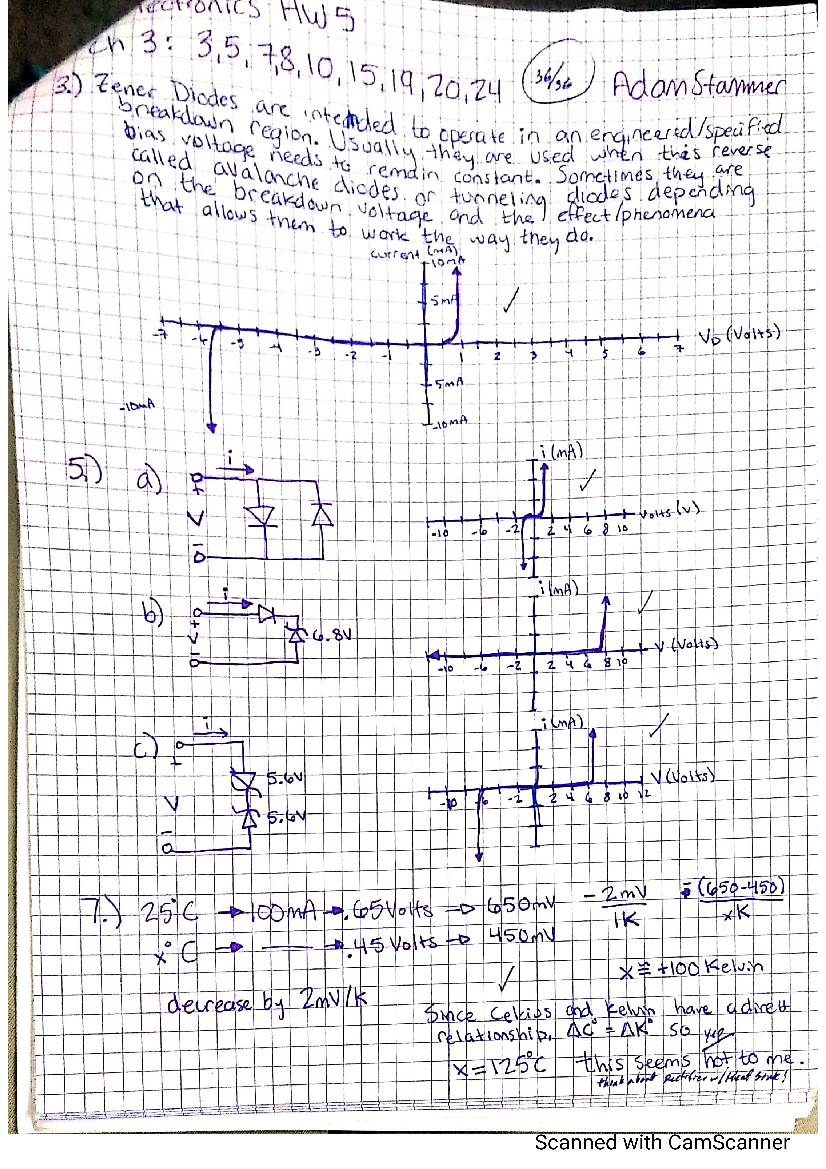 Electronics HW5
Ch 3: 3,5,7,8,10,15,19,20,24 36/36 Adam Stammer
3.) Zener Diodes are intended to operate in an engineered/specified
breakdown region. Usually they are used when this reverse
bias voltage needs to remain constant. Sometimes they are
called avalanche diodes or tunneling diodes depending
on the breakdown voltage and the effect/phenomena
that allows them to work the way they do.
current (mA)
10mA
5mA
-7 -6 -5 -4 -3 -2 -1 1 2 3 4 5 6 7 VD (Volts)
-5mA
-10mA
-10mA
5.) a) i + V -
i (mA)
-10 -6 -2 2 4 6 8 10 Volts (V)
b) i + V - 6.8V
i (mA)
-10 -6 -2 2 4 6 8 10 V (Volts)
c) i + V - 5.6V 5.6V
i (mA)
-10 -6 -2 2 4 6 8 10 12 V (Volts)
7.) 25°C → 100mA → .65 Volts → 650mV -2mV/1K = (650-450)/xK
x°C → → .45 Volts → 450mV
x ≅ +100 Kelvin
decrease by 2mV/K
Since Celcius and Kelvin have a direct
relationship, ΔC° = ΔK° so yep
x = 125°C this seems hot to me.
think about rectifier w/ Heat Sink!
Scanned with CamScanner